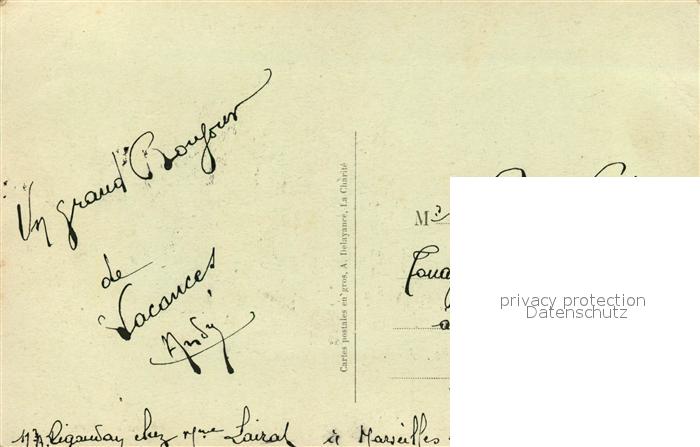 Un grand Bonjour
de
Vacances
André
Cartes postales en gros, A. Delayance, La Charité
M
privacy protection
Datenschutz
chez Mme Loirat à Marseilles